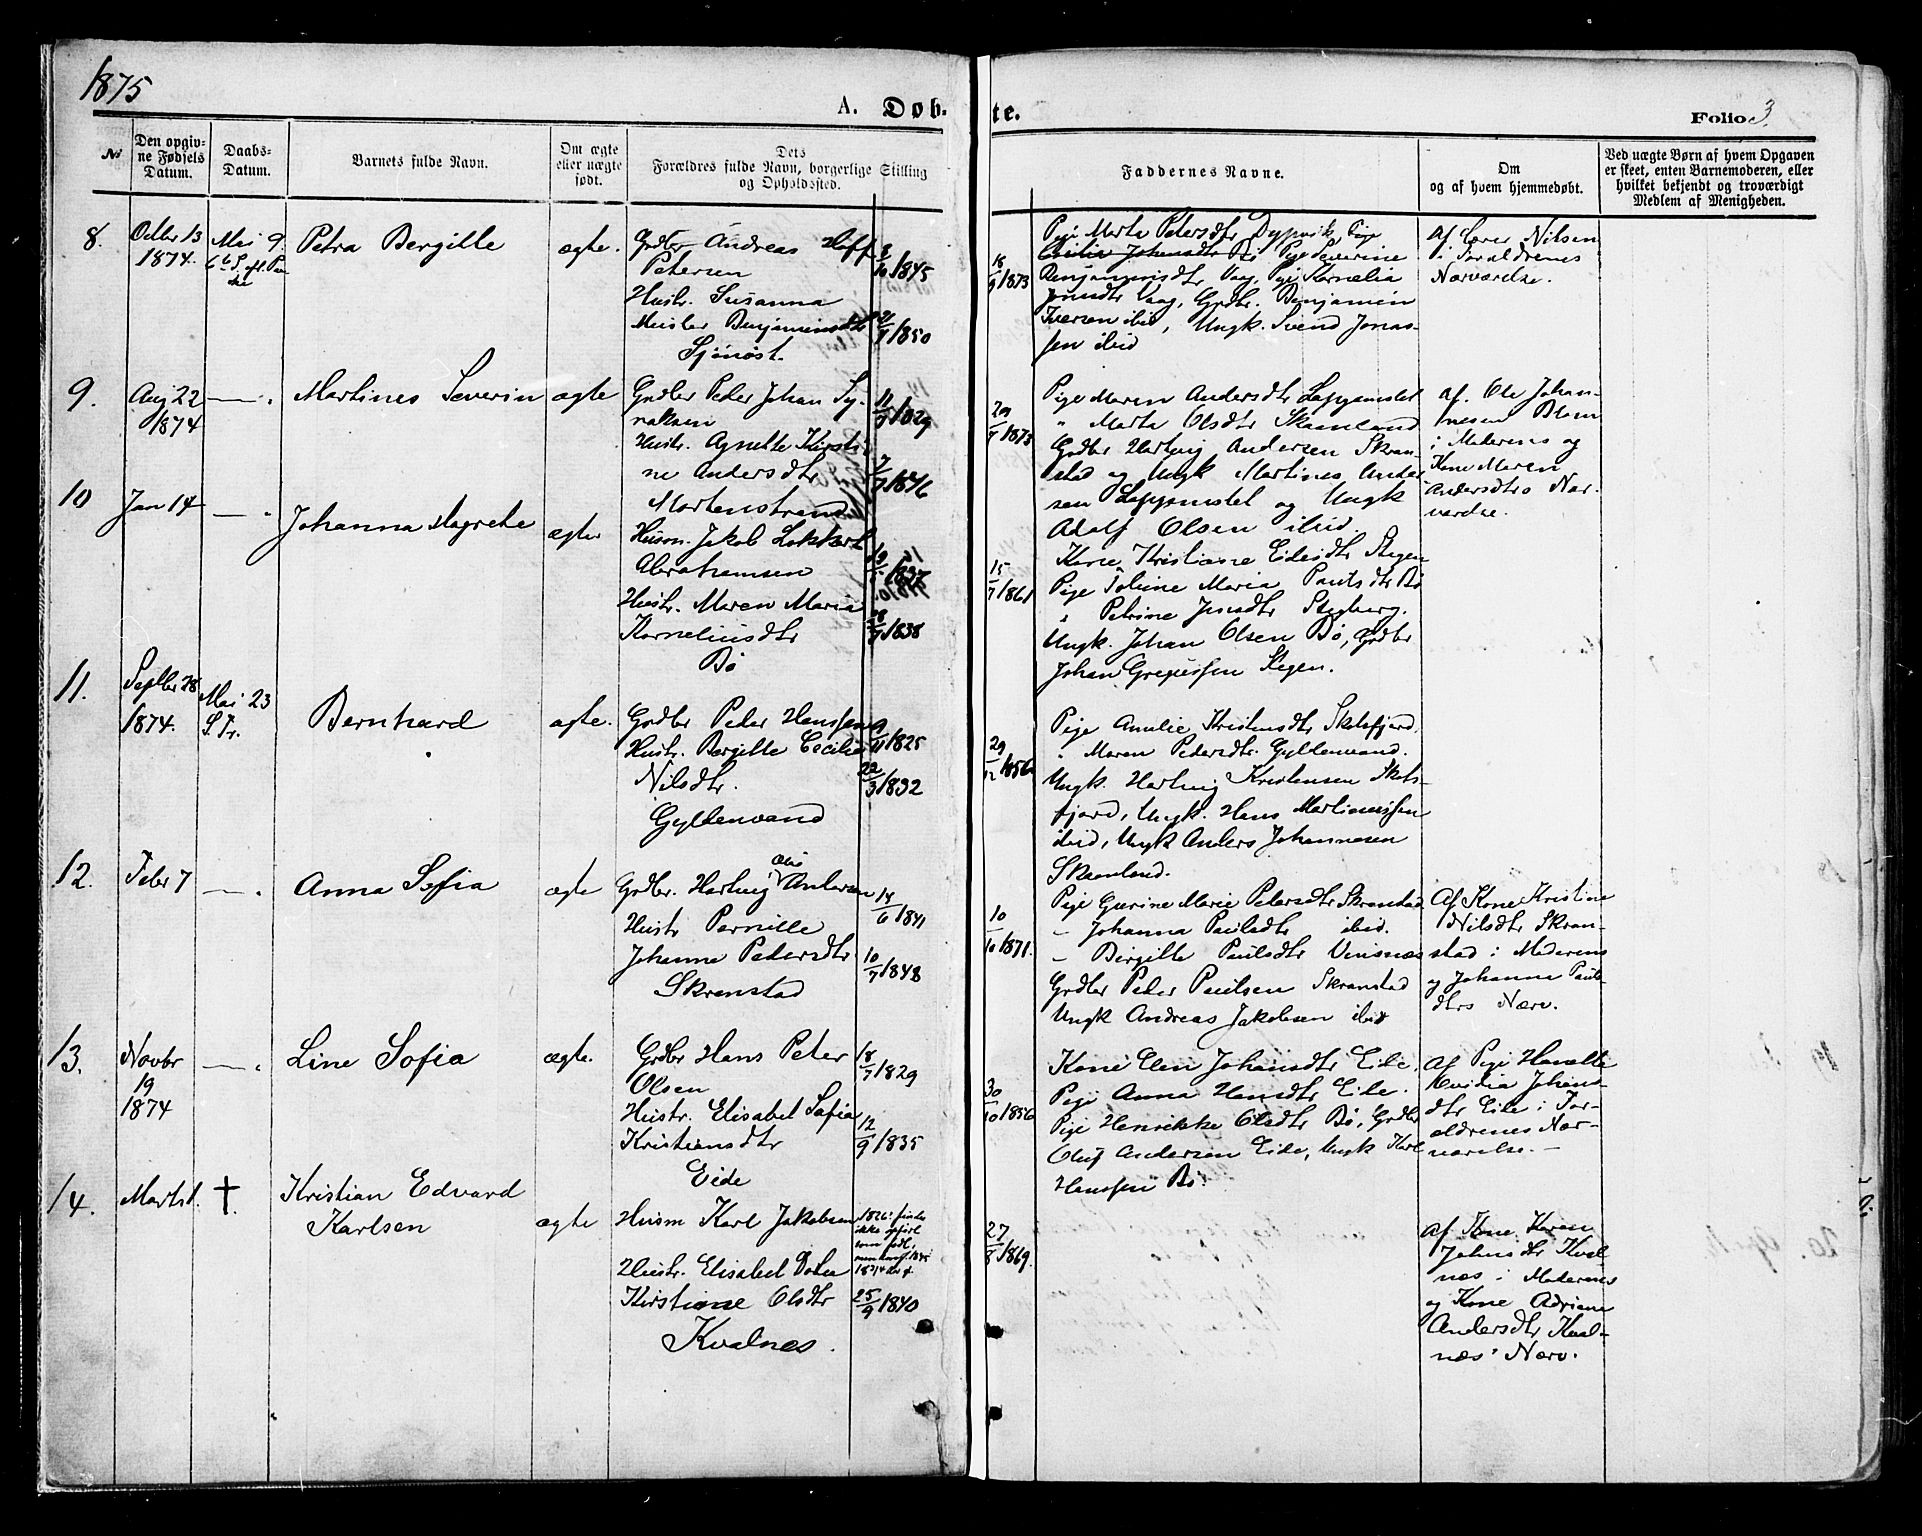 1875
A. Døb-
te.
Folio 3
№
Den opgiv-
ne Fødsels
Datum.
Daabs-
Datum.
Barnets fulde Navn.
Om ægte
eller uægte
født.
Dets
Forældres fulde Navn, borgerlige Stilling
og Opholdssted.
Faddernes Navne.
Om
og af hvem hjemmedøbt.
Ved uægte Børn af hvem Opgaven
er skeet, enten Barnemoderen, eller
hvilket bekjendt og troværdigt
Medlem af Menigheden.
8.
Octbr 13
1874.
Mai 9.
Petra Bergitte
ægte.
Grdbr Andreas Hoff
Petersen
Hustr. Susanna
Benjaminsdtr
1845
1850
18/9 1873
Pige Marta Petersdtr Dypvik, Pige
Johansdtr Bø Pige Severine
Benjaminsdtr Vaag, Pige Kornelia
Vaag, Grdbr. Benjamin
Iversen ibid, Ungk. Svend Jonas-
sen ibid
Af Nilsen
i Foraldrenes
Nærværelse.
9.
Aug 22
1874
— " .
Martines Severin
ægte
Grdbr Peder Johan Sy-
raksen
Hustr. Agnette Kirsti-
ne Andersdtr
Mortenstrand
1829
7/7 1846
1873
Pige Maren Andersdtr
" Marta Olsdtr Skamland
Grdbr Hartvig Andersen Skran-
stad og Ungk Martines Ander
sen og Ungk
Adolf Olsen ibid.
af. Ole Johan-
nesen
i Moderens og
Kone Maren
Andersdtrs Nær-
værelse.
10
Jan 14
— " .
Johanna Magrete
ægte
Husm. Jakob Lokkert
Abrahamsen
Hustr. Maren Maria
Korneliusdtr
Bø
1838
15/7 1861
Kone Kristiane Eidisdtr Stegen
Pige Maria Paulsdtr Bø
" Petrine Jensdtr Stegberg.
Ungk. Johan Olsen Bø, Grdbr
Johan Stegen.
11.
Septbr 28
1874.
Mai 23
Bernhard
ægte.
Grdbr Peder Hanssen
Hustr. Bergitte Cecilia
Nilsdtr.
Gyldenvand
9/11 1825
22/3 1832
29/12 1856
Pige Amalie Kristensdtr Skotsfjord.
" Maren Pedersdtr. Gyldenvand.
Ungk. Hartvig Kristensen Skots-
fjord, Ungk. Hans Martinussen
ibid, Ungk Anders Johannesen
Skamland.
12.
Febr 7
— " .
Anna Sofia
ægte
Grdbr. Hartvig Andersen
Hustr Pernille
Johanna Pedersdtr.
Skranstad
14/6 1841
10/7 1848
10/10 1871.
Pige Gurine Marie Petersdtr Skranstad
— Johanna Paulsdtr ibid.
— Birgitte Paulsdtr Vinsnæs
Grdbr Peder Paulsen Skranstad
Ungk Andreas Jakobsen ibid
Af Kone Kristine
Nilsdtr Skran-
stad i Moderens
og Johanna Pauls-
dtrs Nærv.
13.
Novbr
19
1874
— " .
Line Sofia
ægte.
Grdbr Hans Peter
Olsen
Hustr. Elisabet Sofia
Kristiansdtr
Eide
18/7 1829
12/9 1835
30/10 1856
Kone Elen Johansdtr Eide.
Pige Anna Hansdtr Eide.
Pige Henrikke Olsdtr Bø, Grdbr
Oluf Andersen Eide, Ungk Karl
Hanssen Bø.
Af Pige Hanette
Johans-
dtr Eide i For-
ældrenes Nær-
værelse. —
14.
Marts 1.
†.
Kristian Edvard
Karlsen
ægte
Husm Karl Jakobsen
Hustr. Elisabet
Kirstine Olsdtr
Kvalnes.
1826: findes
ikke opført
som født,
25/9 1840
27/8 1869.
Af Kone Karen
Johnsdtr Kval-
næs i Moderens
og Kone Adriane
Andersdtr Kval-
næs' Nærv.